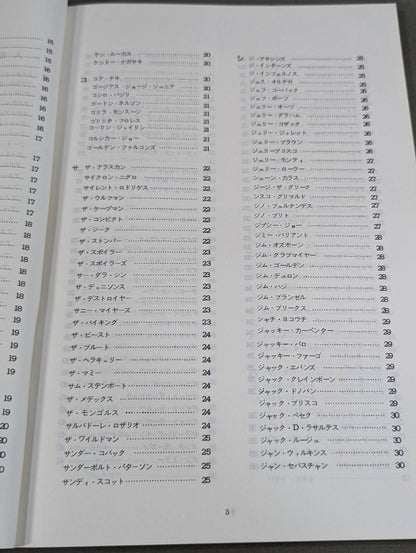 15
15
15
16
16
16
16
16
17
17
17
17
17
19
19
20
20
30
ケン・ルーカス 30
ケンドー・ナガサキ 30
コ コア・チキ 30
ゴージアス・ジョージ・ジュニア 30
コシロ・バジリ 21
ゴードン・ネルソン 21
ゴリラ・モンスーン 21
ゴリラ・フロレス 21
コーリン・ジョイリン 21
コルシカ・ジョー 21
ゴールデン・ファルコンズ 21
サ ザ・アラスカン 22
サイクロン・ニグロ 22
サイレント・ロドリゲス 22
ザ・ウルフマン 22
ザ・ケープマン 22
ザ・コンビクト 22
ザ・シーク 22
ザ・ストンパー 22
ザ・スポイラー 23
ザ・スポイラーズ 23
サー・ダラ・シン 23
ザ・デニソンズ 23
ザ・デストロイヤー 23
サニー・マイヤーズ 23
ザ・バイキング 23
ザ・ビースト 24
ザ・ブルート 24
ザ・ヘラキュリー 24
ザ・マミー 24
サム・ステンボート 24
ザ・メデックス 24
ザ・モンゴルス 24
サルバドーレ・ロザリオ 24
ザ・ワイルドマン 25
サンダー・コバック 25
サンダーボルト・パターソン 25
サンディ・スコット 25
シ ジ・アサシンズ 25
ジ・インターンズ 25
ジ・インフェルノス 25
ジェス・オルテガ 26
ジェフ・コーバック 26
ジェフ・ポーツ 26
ジェリー・オーツ 26
ジェリー・グラハム 26
ジェリー・コザック 26
ジェリー・ジャレット 26
ジェリー・ブラウン 26
ジェリーブリスコ 26
ジェリー・モンティ 27
ジェリー・ローラー 27
ジェーン・カラス 27
ジージ・ザ・グリーク 27
シスコ・グリマルド 27
ジノ・フェルナンデス 27
ジノ・ブリト 27
ジプシー・ジョー 27
ジミー・バリアント 28
ジム・オズボーン 28
ジム・グラブマイヤー 28
ジム・ゴールデン 28
ジム・デュロン 28
ジム・ハジ 28
ジム・ブランゼル 28
ジム・ブリークス 28
シャチ・ヨコウチ 28
ジャッキー・カーペンター 29
ジャッキー・パロ 29
ジャッキー・ファーゴ 29
ジャック・エバンズ 29
ジャック・クレインボーン 29
ジャック・ドノバン 29
ジャック・ブリスコ 29
ジャック・ベセク 30
ジャック・D・ラサルテス 30
ジャック・ルージュ 30
ジャン・ウィルキンス 30
ジャン・セバスチャン 30
3